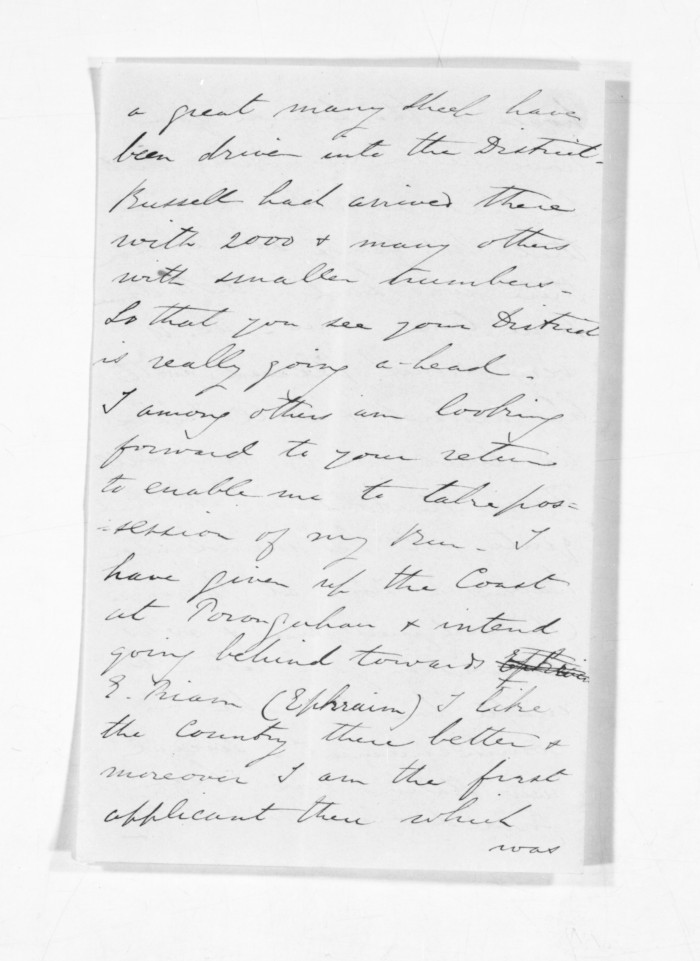 a great many sheep have
been driven into the District -
Russell had arrived there
with 2000 & many others
with smaller numbers -
So that you see your District
is really going a-head -
I among others am looking
forward to your return
to enable me to take pos=
=session of my Run - I
have given up the Coast
at Porongahau & intend
going behind towards
E. Niam (Ephraim) I like
the Country there better &
moreover I am the first
applicant there which
was